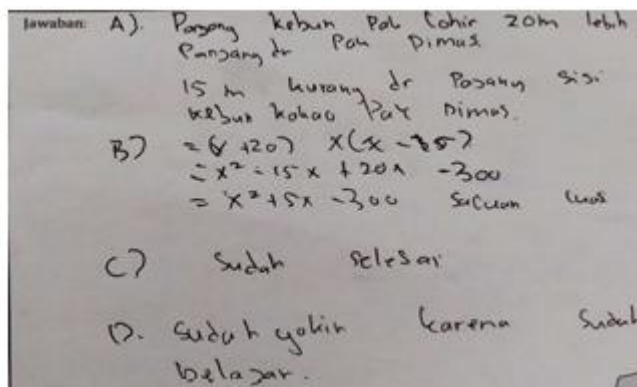 Jawaban: A). Panjang kebun Pak Cohir 20m lebih
Panjang dr Pak Dimas
15 m kurang dr Panjang sisi
kebun kakao Pak Dimas.
B) = (x +20) x (x - 15)
= x² - 15x + 20x - 300
= x² + 5x - 300 Satuan luas
C) Sudah selesai
D. Sudah yakin karena Sudah
belajar.